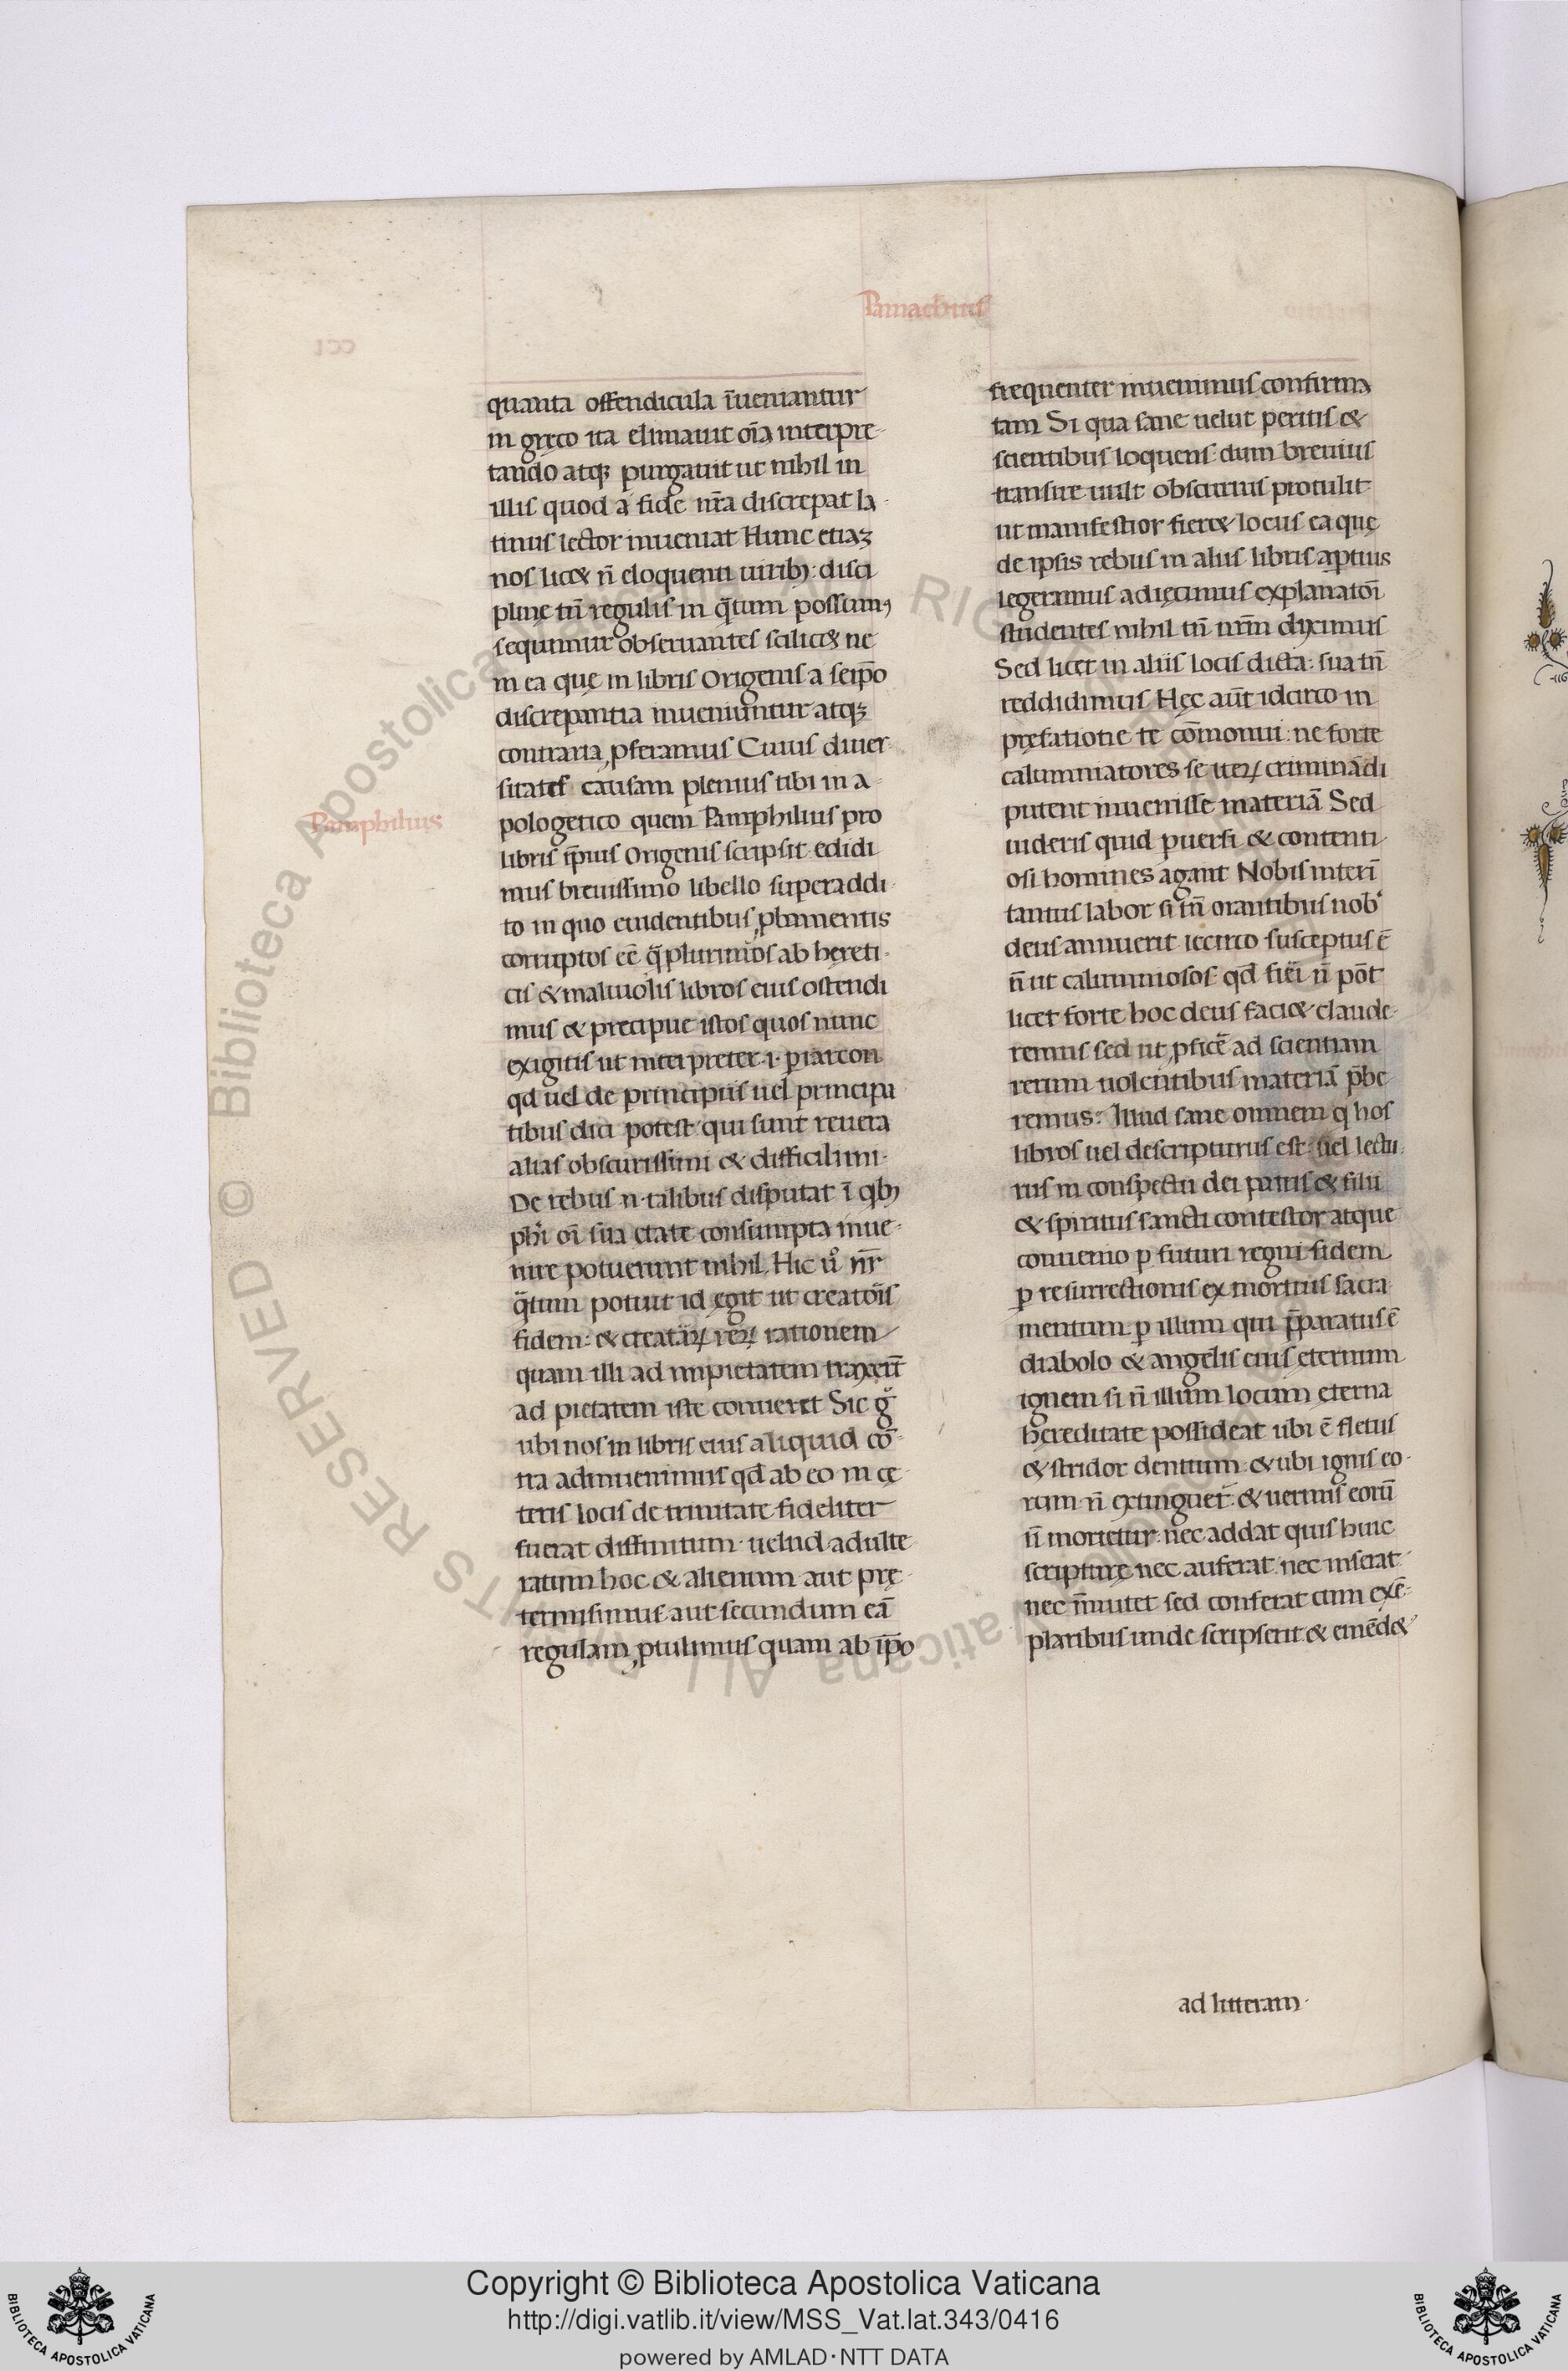 Pamachius
quanta offendicula īueniantur
in gręco ita elimauit oīa interpre-
tando atqꝫ purgauit ut nihil in
illis quod a fide nr̄a discrepat la-
tinus lector inueniat Hunc etiaꝫ
nos lic& n̄ eloquenti uiribꝫ: disci
plinę tn̄ regulis in q̄tum possumꝰ
sequimur obseruantes scilic& ne
in ea quę in libris Origenis a seip̄o
discrepantia inueniuntur atqꝫ
contraria ꝓferamus Cuius diuer-
sitatis causam plenius tibi in a-
pologetico quem Pamphilius pro
Pamphilius
libris ip̄ius Origenis scripsit edidi
mus breuissimo libello superaddi-
to in quo euidentibus ꝓbamentis
corruptos eē q̄plurimos ab hereti-
cis & maliuolis libros eius ostendi
mus & precipue istos quos nunc
exigitis ut interpreter .i. ꝑiarcon
qd̄ uel de principiis uel principa
tibus dici potest qui sunt reuera
alias obscurissimi & difficilimi.
De rebus .n. talibus disputat ī qbꝫ
phi oī sua etate consumpta inue-
nire potuerunt nihil. Hic u͛o nr̄
q̄tum potuit id egit ut creatōis
fidem: & creatāꝝ reꝝ rationem
quam illi ad impietatem traxerūt
ad pietatem iste conueret Sic g̊
ubi nos in libris eius aliquid cō-
tra adinuenimus qd̄ ab eo in cę-
teris locis de trinitate fideliter
fuerat diffinitum uelud adulte
ratum hoc & alienum aut prę-
termisimus aut secundum eā
regulam ꝓtulimus quam ab ip̄o
frequenter inuenimus confirma
tam Si qua sane uelut peritis &
scientibus loquens: dum breuius
transire uult obscurius protulit
ut manifestior fier& locus ea quę
de ipsis rebus in aliis libris aꝑtius
legeramus adiecimus explanatōi
studentes nihil tn̄ nr̄m diximus
Sed licet in aliis locis dicta: sua tn̄
reddidimus Hęc aūt idcirco in
prefatione te cōmonui: ne forte
calumniatores se iteꝝ criminādi
putent inuenisse materiā Sed
uideris quid ꝑuersi & contenti-
osi homines agant Nobis interī
tantus labor si tn̄ orantibus nob̄
deus annuerit iccirco susceptus ē
n̄ ut calumniosos qd̄ fiēi n̄ pōt
licet forte hoc deus faci& claude-
remus sed ut ꝓficē ad scientiam
rerum uolentibus materiā p̄be
remus: Illud sane omnem q hos
libros uel descripturus est uel lectu-
rus in conspectu dei patris & filii
& spiritus sancti contestor atque
conuenio ꝑ futuri regni fidem
ꝑ resurrectionis ex mortuis sacra
mentum ꝑ illum qui p̄paratus ē
diabolo & angelis eius eternum
ignem si n̄ illum locum eterna
hereditate possideat ubi ē fletus
& stridor dentium & ubi ignis eo-
rum n̄ extinguet & uermis eorū
n̄ morietur nec addat quis huic
scripturę nec auferat nec inserat
nec īmutet sed conferat cum exē-
plaribus unde scripserit & emēd&
ad litteram.
© Biblioteca Apostolica Vaticana ALL RIGHTS RESERVED
Copyright © Biblioteca Apostolica Vaticana
http://digi.vatlib.it/view/MSS_Vat.lat.343/0416
powered by AMLAD·NTT DATA
BIBLIOTECA APOSTOLICA VATICANA
BIBLIOTECA APOSTOLICA VATICANA